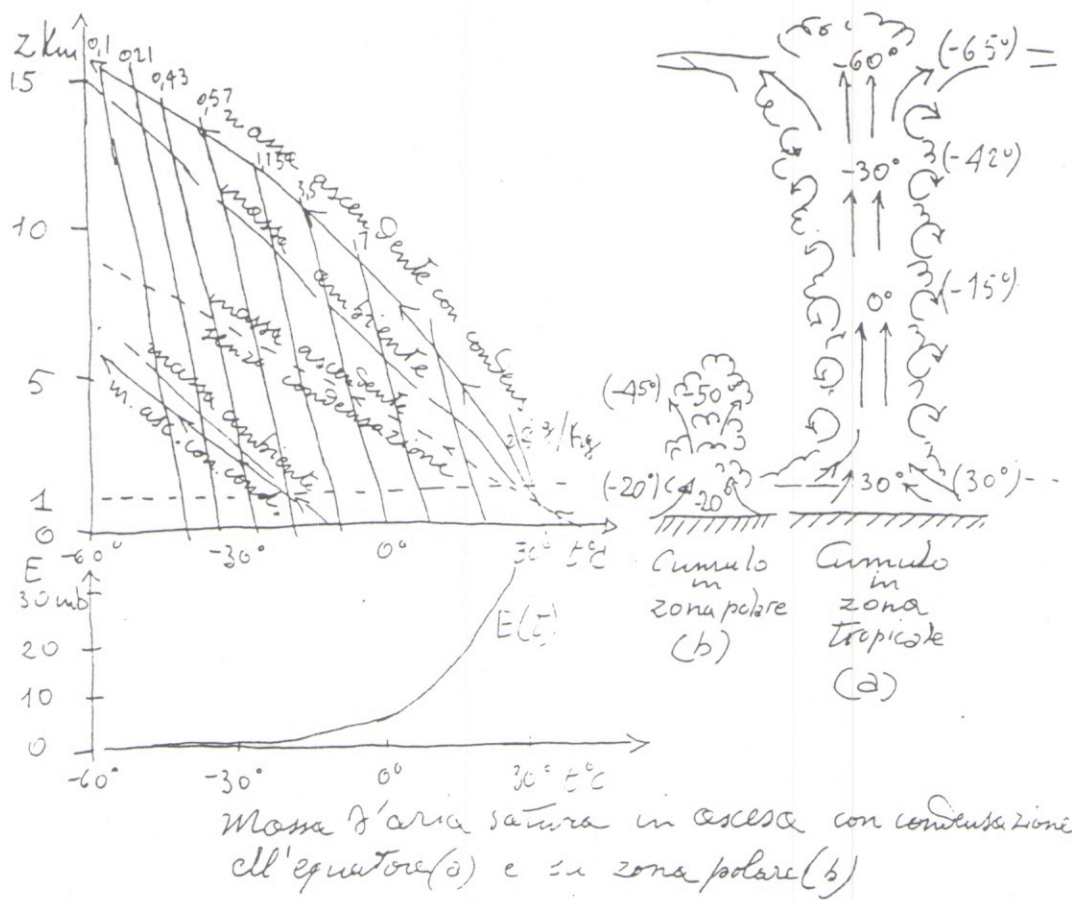 z Km
0,1
0,21
0,43
0,57
1,154
3,5
7
massa ascendente con condens.
15
massa ambiente
10
massa ascendente
senza condensazione
5
massa ambiente
m. asc. con cond.
1
0
-60° -30° 0° 30° t°C
E
30 mb
20
10
0
E(t)
-60° -30° 0° 30° t°C
-60°
(-65°)
-30°
(-42°)
0°
(-15°)
30°
(30°)
(-45°)
-50°
(-20°)
-20°
Cumulo
in
zona polare
(b)
Cumulo
in
zona
tropicale
(a)
Massa d'aria satura in ascesa con condensazione
all'equatore(a) e in zona polare(b)